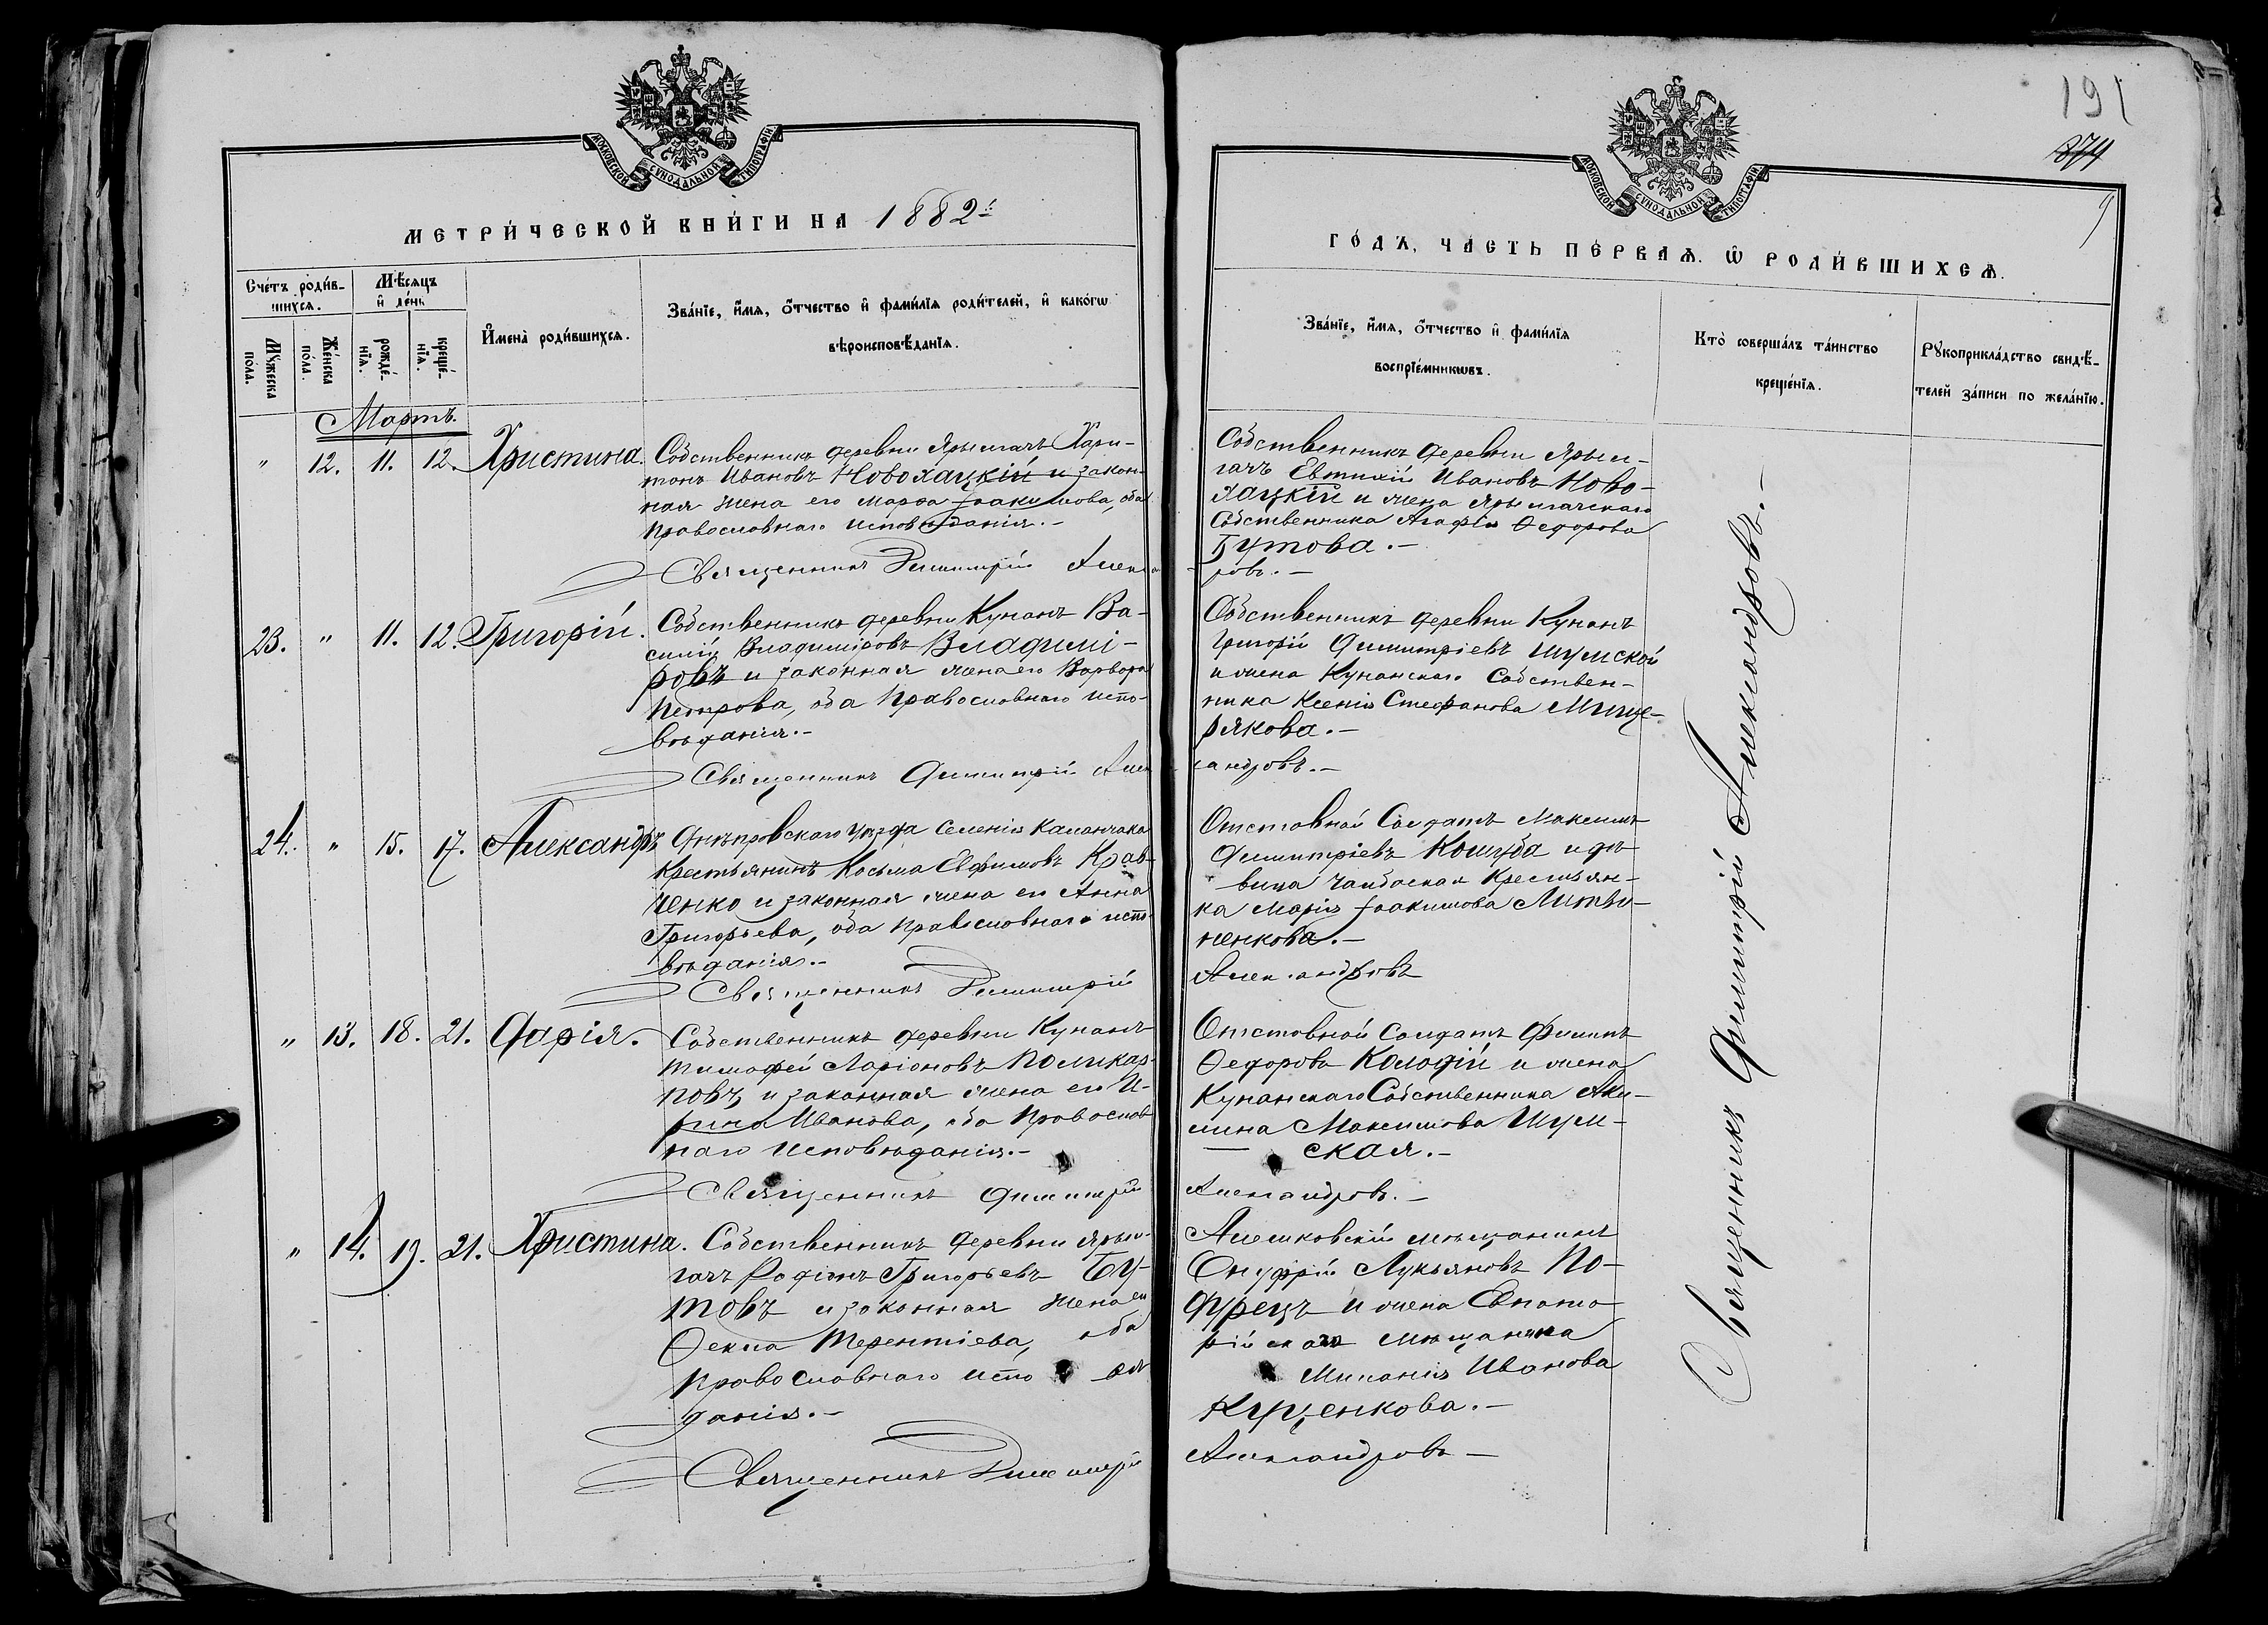 МОСКОВСКОЙ СѴНОДАЛЬНОЙ ТИПОГРАФІИ
МЕТРИ́ЧЕСКОЙ КНИ́ГИ НА 1882й
Сче́тъ роди́в-
шихсѧ.
Мѣ́сѧцъ
и҆ де́нь
Мꙋ́жеска
по́ла.
Же́нска
по́ла.
рожде́-
нїѧ.
креще́-
нїѧ.
И҆мена̀ роди́вшихсѧ.
Зва́нїе, и҆́мѧ, ѻ҆́тчество и҆ фами́лїѧ роди́телей, и҆ како́гѡ
вѣроисповѣ́данїѧ.
Мартъ.
" 12. 11. 12. Христина.
Собственникъ деревни Ярылгачъ Хари-
тонъ Ивановъ Новохацкій и закон-
ная жена его Марѳа Іоакимова, оба
Православнаго исповѣданія.-
Священникъ Димитрій Алекса
23. " 11. 12. Григорій.
Собственникъ деревни Кунанъ Ва-
силій Владиміровъ Владимі-
ровъ и законная жена его Варвара
Петрова, оба Православнаго испо-
вѣданія.-
Священникъ Димитрій Алек
24. " 15. 17. Александръ
Днѣпровскаго уѣзда селенія Каланчака
Крестьянинъ Косьма Евфимовъ Крав-
ченко и законная жена его Анна
Григорьева, оба Православнаго испо-
вѣданія.-
Священникъ Димитрій
" 13. 18. 21. Дарія.
Собственникъ деревни Кунанъ
Тимофей Ларіоновъ Поликар-
повъ и законная жена его И-
рина Иванова, оба Православ-
наго исповѣданія.-
Священникъ Димитрій
" 14. 19. 21. Христина.
Собственникъ деревни Ярыл-
гачъ Родіонъ Григорьевъ Бу-
товъ и законная жена его
Ѳекла Терентіева, оба
Православнаго испо вѣ
данія.-
Священникъ Димитрій
191
374
МОСКОВСКОЙ СѴНОДАЛЬНОЙ ТИПОГРАФІИ
ГО́ДЪ, ЧА́СТЬ ПЕ́РВАѦ. Ѽ РОДИ́ВШИХСѦ.
Зва́нїе, и҆́мѧ, ѻ҆́тчество и҆ фами́лїѧ
воспрїе́мникѡвъ.
Кто̀ соверша́лъ та́инство
креще́нїѧ.
Рꙋкоприкла́дство свидѣ́-
телей за́писи по жела́нїю.
Собственникъ деревни Ярыл-
гачъ Евтихій Ивановъ Ново-
хацкій и жена Ярылгачскаго
Собственника Агафія Ѳедорова
Бутова.-
ровъ.-
Собственникъ деревни Кунанъ
Григорій Димитріевъ Шумской
и жена Кунанскаго Собствен-
ника Ксенія Стефанова Мище-
рякова.-
сандровъ.-
Отставной Солдатъ Максимъ
Димитріевъ Кошуба и дѣ-
вица Крестьян-
ка Марія Іоакимова Литви-
ненкова.-
Александровъ
Отставной Солдатъ Филипъ
Ѳедоровъ Колодій и жена
Кунанскаго Собственника Аки-
лина Максимова Шум-
ская.-
Александровъ.-
Алешковскій мѣщанинъ
Онуфрій Лукьяновъ По-
дурецъ и жена Евпато-
рійскаго Мѣщанина
Миланія Иванова
Куценкова.-
Александровъ-
Священникъ Димитрій Александровъ.-